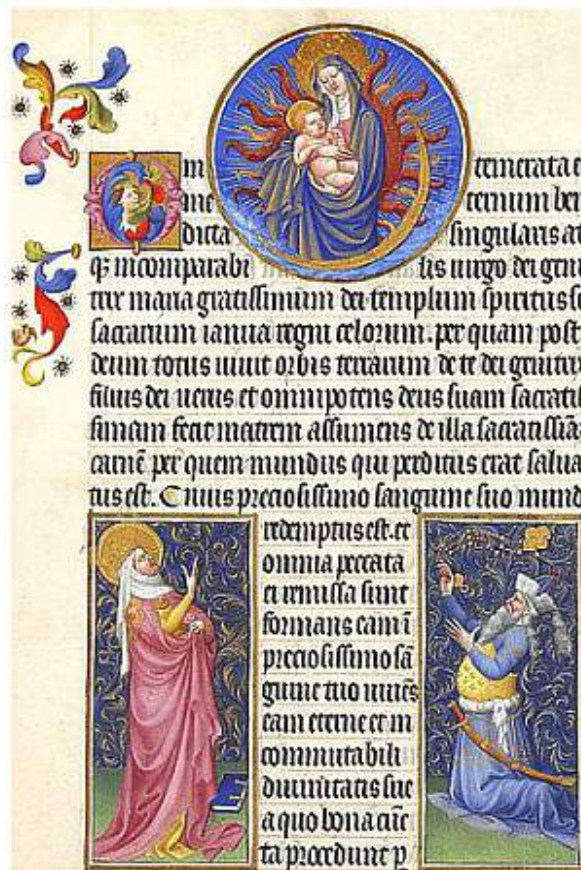 O in temerata e
in e ternum be
dicta singularis at
qꝫ incomparabi lis uirgo dei geni
trix maria gratissimum dei templum spiritus s
sacrarium ianua regni celorum. per quam post
deum totus uiuit orbis terrarum de te dei genitri
filius dei uerus et omnipotens deus suam sacratis
simam fecit matrem assumens de illa sacratissiā
carnē per quem mundus qui perditus erat salua
tus est. Cuius preciosissimo sanguine suo mund
redemptus est. et
omnia peccata
ei remissa sunt
formans eam ī
preciosissimo sā
guine tuo uiuēs
eam eterne et in
commutabili
diuinitatis sue
a quo bona cūc
ta procedunt p